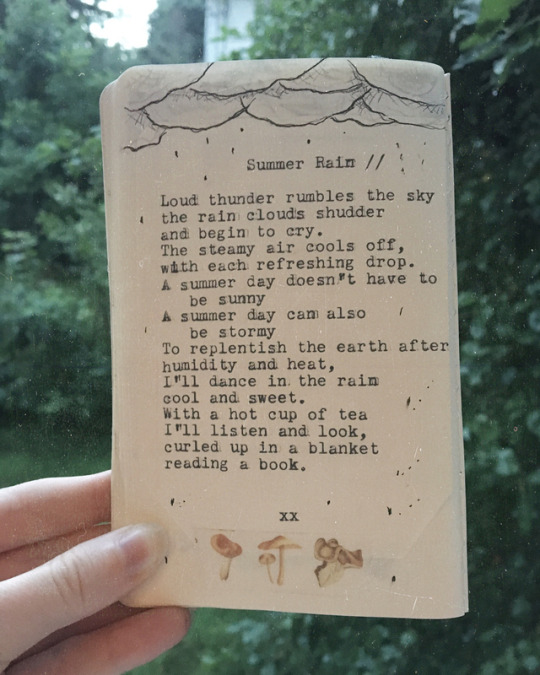 Summer Rain //
Loud thunder rumbles the sky
the rain clouds shudder
and begin to cry.
The steamy air cools off,
with each refreshing drop.
A summer day doesn"t have to
be sunny
A summer day can also
be stormy
To replentish the earth after
humidity and heat,
I"ll dance in the rain
cool and sweet.
With a hot cup of tea
I"ll listen and look,
curled up in a blanket
reading a book.
xx